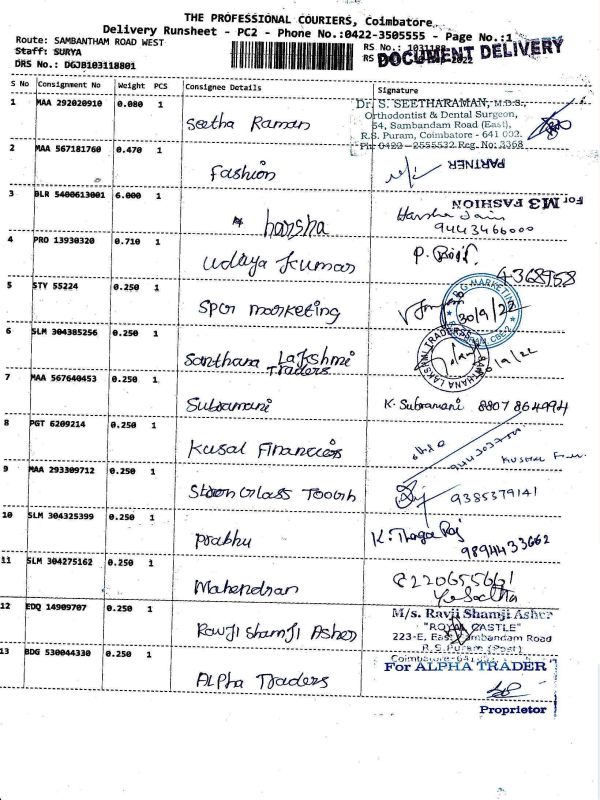 THE PROFESSIONAL COURIERS, Coimbatore
Delivery Runsheet - PC2 - Phone No.:0422-3505555 - Page No.:1
Route: SAMBANTHAM ROAD WEST
RS No.: 1031188
Staff: SURYA
RS
DOCUMENT DELIVERY
DRS No.: DGJB103118801
S No Consignment No Weight PCS Consignee Details Signature
1 MAA 292020910 0.080 1 Seetha Raman
Dr. S. SEETHARAMAN, M.D.S.,
Orthodontist & Dental Surgeon,
54, Sambandam Road (East),
R.S. Puram, Coimbatore - 641 002.
Ph: 0422 - 2555532 Reg. No: 3368
2 MAA 567181760 0.470 1 Fashion
PARTNER
For M3 FASHION
3 BLR 5400613001 6.000 1 harsha
Harsha Jain
9443466000
4 PRO 13930320 0.710 1 Udaya Kumar
4368958
5 STY 55224 0.250 1 Spcr marketing
MARKETING
30/9/22
CBE-2
6 SLM 304385256 0.250 1 Santhana Lakshmi
Traders
SANTHANA LAKSHMI TRADERS
/9/22
7 MAA 567640453 0.250 1 Subramani
K. Subramani 8807864994
8 PGT 6209214 0.250 1 Kusal Financies
9 MAA 293309712 0.250 1
9385379141
10 SLM 304325399 0.250 1 Prabhu
K. Thaga Raj
9894433662
11 SLM 304275162 0.250 1 Mahendran
8220655661
12 EDQ 14909707 0.250 1 Rawji Shamji Asher
M/s. Ravji Shamji Asher
"ROYAL CASTLE"
223-E, East Sambandam Road
R.S.Puram (Post)
Coimbatore-641
13 BDG 530044330 0.250 1 Alpha Traders
For ALPHA TRADER
Proprietor